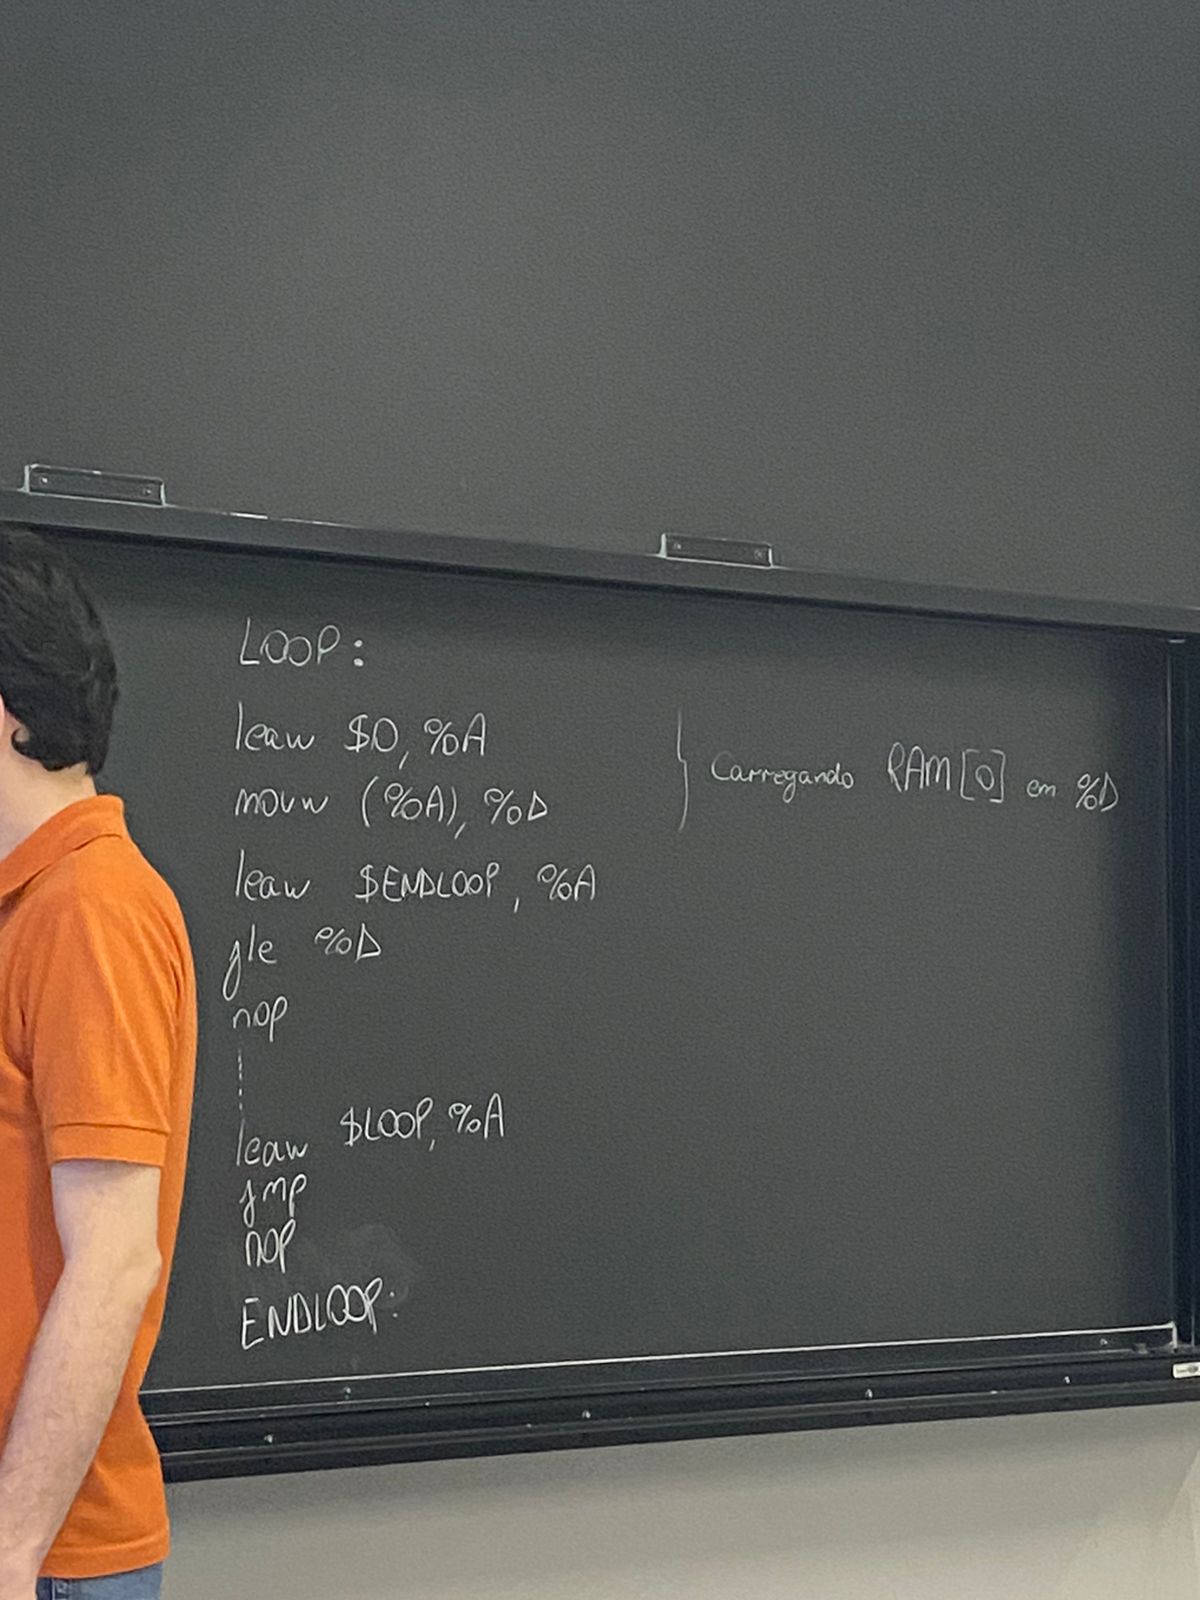 LOOP:
leaw $0, %A
movw (%A), %D
Carregando RAM[0] em %D
leaw $ENDLOOP, %A
jle %D
nop
leaw $LOOP, %A
jmp
nop
ENDLOOP: